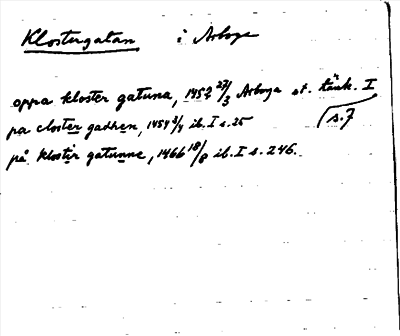 Klostergatan i Arboga
oppa kloster gatuna, 1452 27/3 Arboga st. tänk. I
s. 7
pa closter gadhen, 1459 3/4 ib. I s. 25
på klostir gatunne, 1466 18/8 ib. I s. 246.